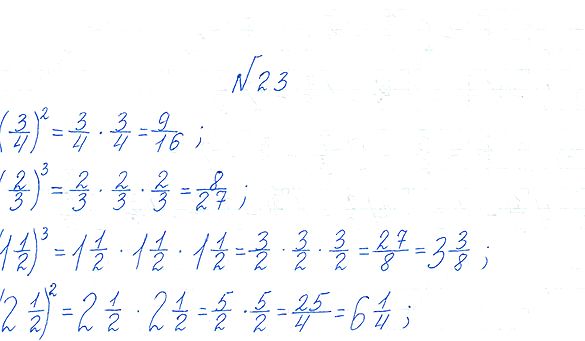 №23
(3/4)² = 3/4 · 3/4 = 9/16 ;
(2/3)³ = 2/3 · 2/3 · 2/3 = 8/27 ;
(1 1/2)³ = 1 1/2 · 1 1/2 · 1 1/2 = 3/2 · 3/2 · 3/2 = 27/8 = 3 3/8 ;
(2 1/2)² = 2 1/2 · 2 1/2 = 5/2 · 5/2 = 25/4 = 6 1/4 ;